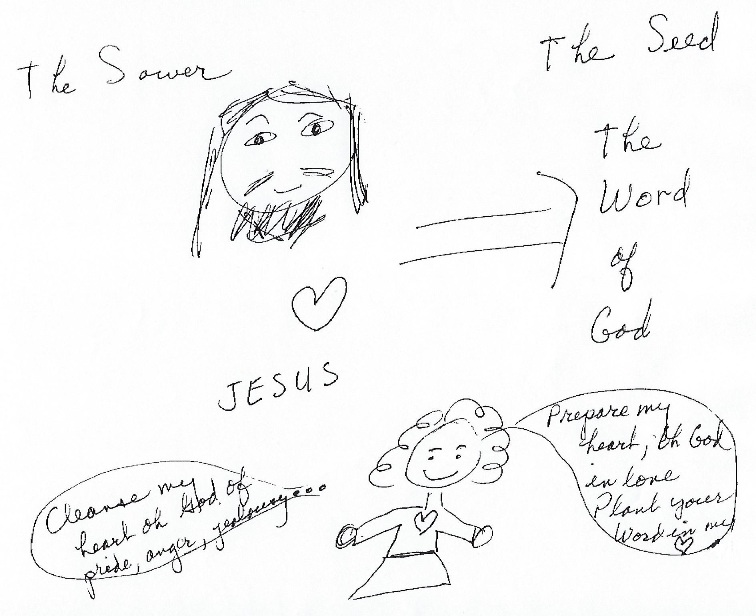 The Sower
The Seed
The
Word
of
God
JESUS
Prepare my
heart, oh God
in love
Plant your
Word in my
Cleanse my
heart oh God of
pride, anger, jealousy...